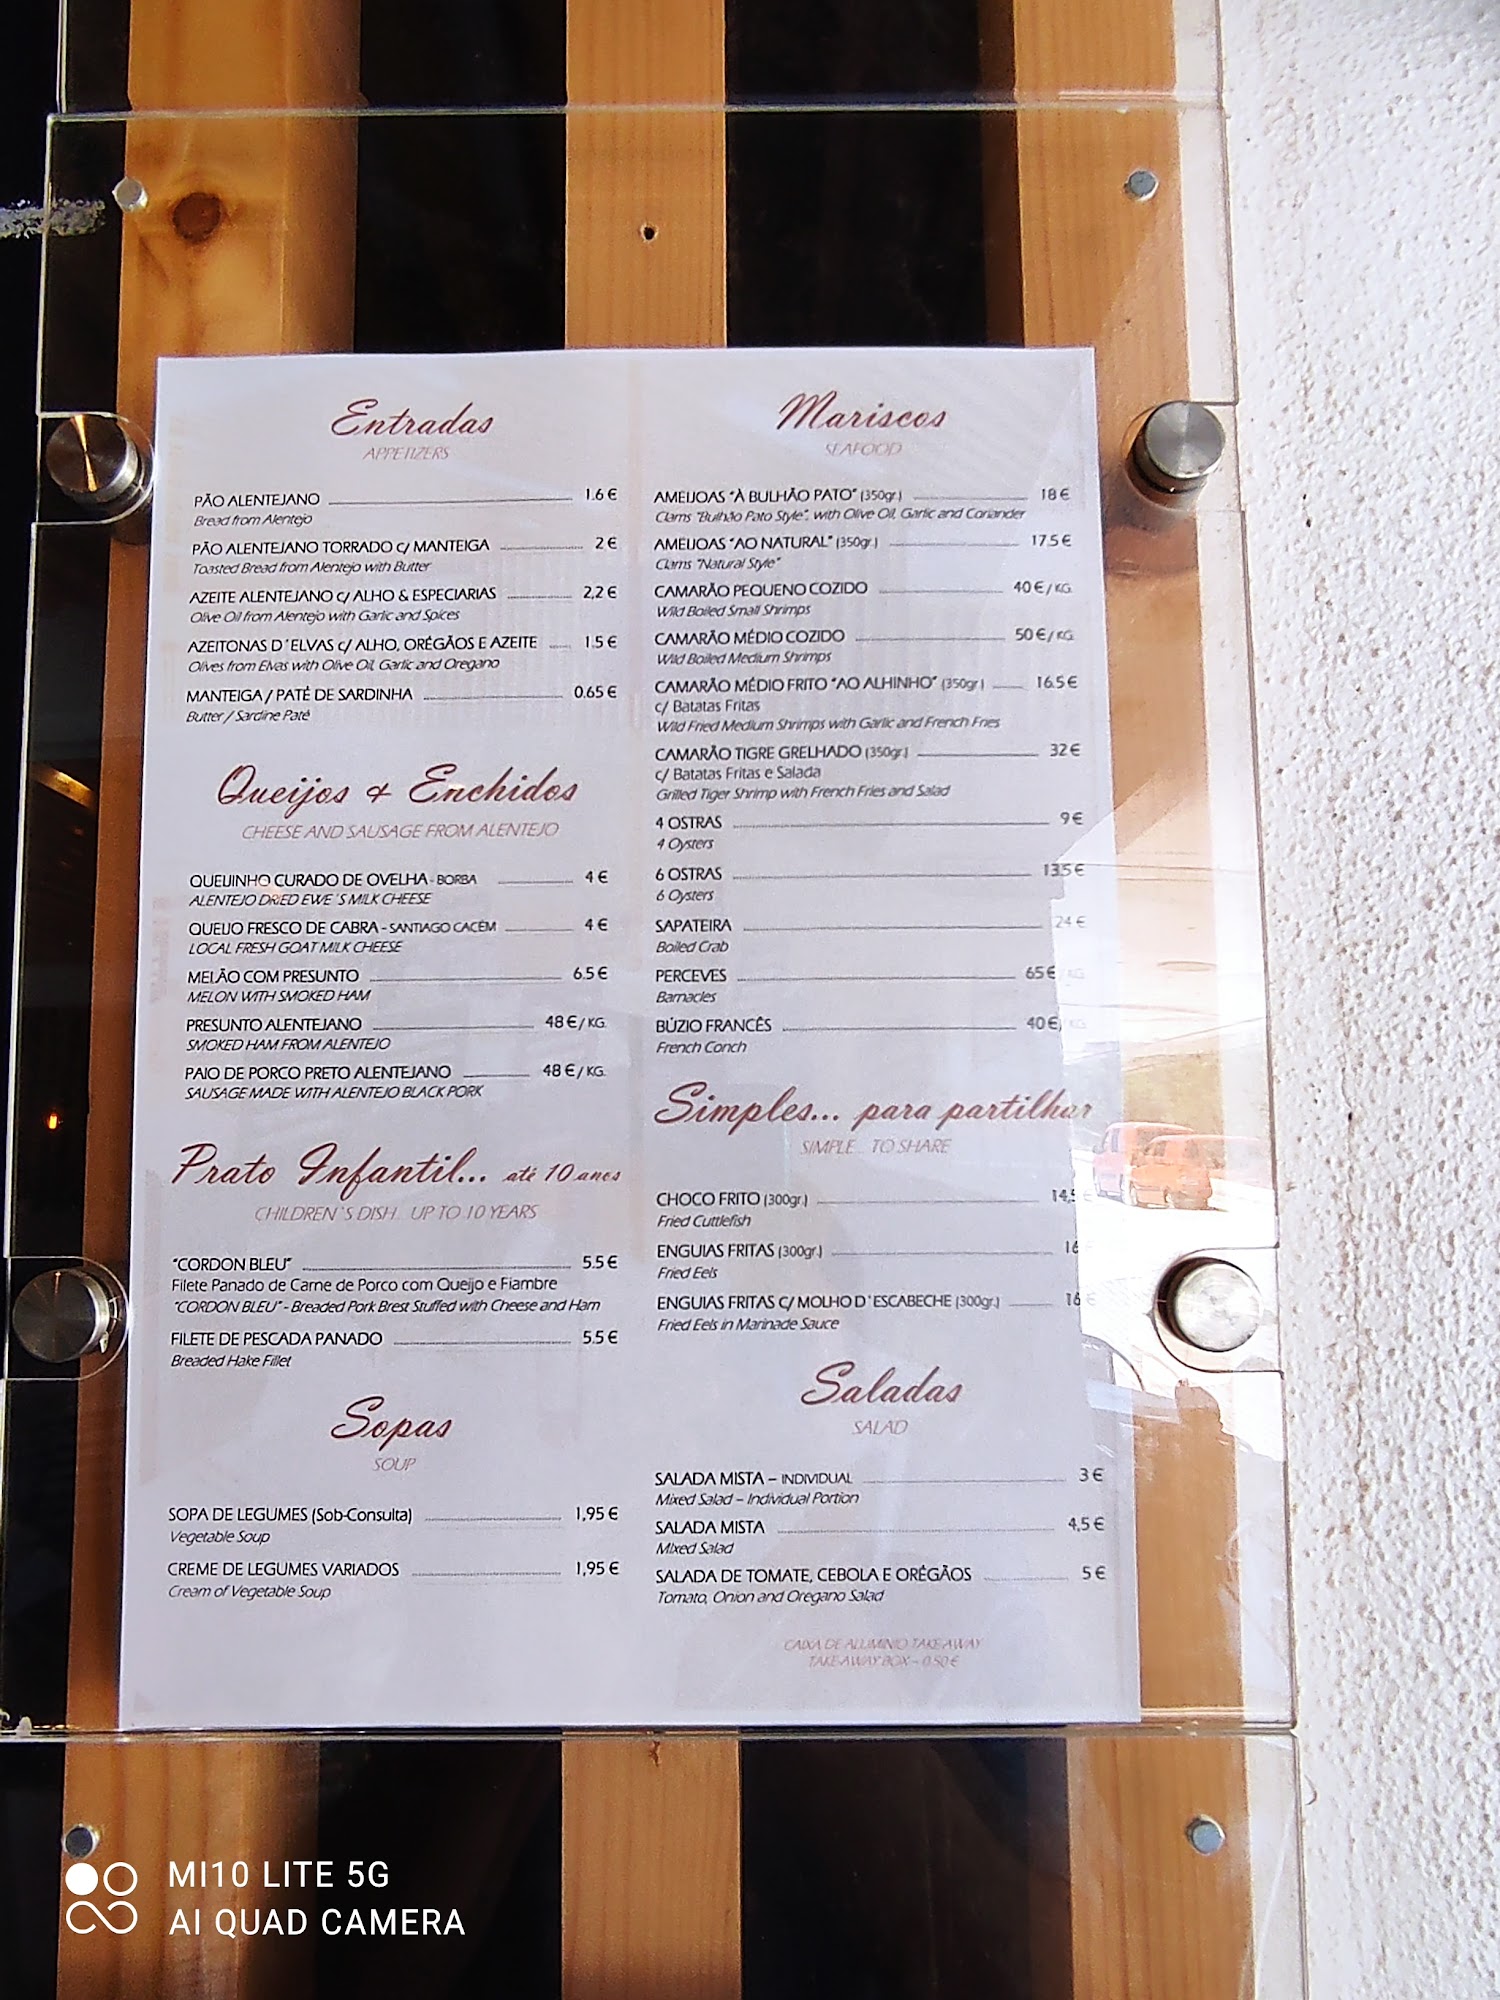 Entradas
APPETIZERS
PÃO ALENTEJANO 1.6 €
Bread from Alentejo
PÃO ALENTEJANO TORRADO c/ MANTEIGA 2 €
Toasted Bread from Alentejo with Butter
AZEITE ALENTEJANO c/ ALHO & ESPECIARIAS 2,2 €
Olive Oil from Alentejo with Garlic and Spices
AZEITONAS D´ELVAS c/ ALHO, ORÉGÃOS E AZEITE 1.5 €
Olives from Elvas with Olive Oil, Garlic and Oregano
MANTEIGA / PATÉ DE SARDINHA 0.65 €
Butter / Sardine Paté
Queijos & Enchidos
CHEESE AND SAUSAGE FROM ALENTEJO
QUEIJINHO CURADO DE OVELHA - BORBA 4 €
ALENTEJO DRIED EWE´S MILK CHEESE
QUEIJO FRESCO DE CABRA - SANTIAGO CACÉM 4 €
LOCAL FRESH GOAT MILK CHEESE
MELÃO COM PRESUNTO 6.5 €
MELON WITH SMOKED HAM
PRESUNTO ALENTEJANO 48 € / KG.
SMOKED HAM FROM ALENTEJO
PAIO DE PORCO PRETO ALENTEJANO 48 € / KG.
SAUSAGE MADE WITH ALENTEJO BLACK PORK
Prato Infantil... até 10 anos
CHILDREN`S DISH... UP TO 10 YEARS
"CORDON BLEU" 5.5 €
Filete Panado de Carne de Porco com Queijo e Fiambre
"CORDON BLEU" - Breaded Pork Brest Stuffed with Cheese and Ham
FILETE DE PESCADA PANADO 5.5 €
Breaded Hake Fillet
Sopas
SOUP
SOPA DE LEGUMES (Sob-Consulta) 1,95 €
Vegetable Soup
CREME DE LEGUMES VARIADOS 1,95 €
Cream of Vegetable Soup
Mariscos
SEAFOOD
AMEIJOAS "À BULHÃO PATO" (350gr.) 18 €
Clams "Bulhão Pato Style", with Olive Oil, Garlic and Coriander
AMEIJOAS "AO NATURAL" (350gr.) 17.5 €
Clams "Natural Style"
CAMARÃO PEQUENO COZIDO 40 € / KG.
Wild Boiled Small Shrimps
CAMARÃO MÉDIO COZIDO 50 € / KG.
Wild Boiled Medium Shrimps
CAMARÃO MÉDIO FRITO "AO ALHINHO" (350gr.) 16.5 €
c/ Batatas Fritas
Wild Fried Medium Shrimps with Garlic and French Fries
CAMARÃO TIGRE GRELHADO (350gr.) 32 €
c/ Batatas Fritas e Salada
Grilled Tiger Shrimp with French Fries and Salad
4 OSTRAS 9 €
4 Oysters
6 OSTRAS 13.5 €
6 Oysters
SAPATEIRA 24 €
Boiled Crab
PERCEVES 65 € / KG
Barnacles
BÚZIO FRANCÊS 40 € / KG
French Conch
Simples... para partilhar
SIMPLE... TO SHARE
CHOCO FRITO (300gr.) 14,5 €
Fried Cuttlefish
ENGUIAS FRITAS (300gr.) 16
Fried Eels
ENGUIAS FRITAS C/ MOLHO D´ESCABECHE (300gr.) 16 €
Fried Eels in Marinade Sauce
Saladas
SALAD
SALADA MISTA – INDIVIDUAL 3 €
Mixed Salad – Individual Portion
SALADA MISTA 4,5 €
Mixed Salad
SALADA DE TOMATE, CEBOLA E ORÉGÃOS 5 €
Tomato, Onion and Oregano Salad
CAIXA DE ALUMINIO TAKE-AWAY
TAKE-AWAY BOX – 0.50 €
MI10 LITE 5G
AI QUAD CAMERA